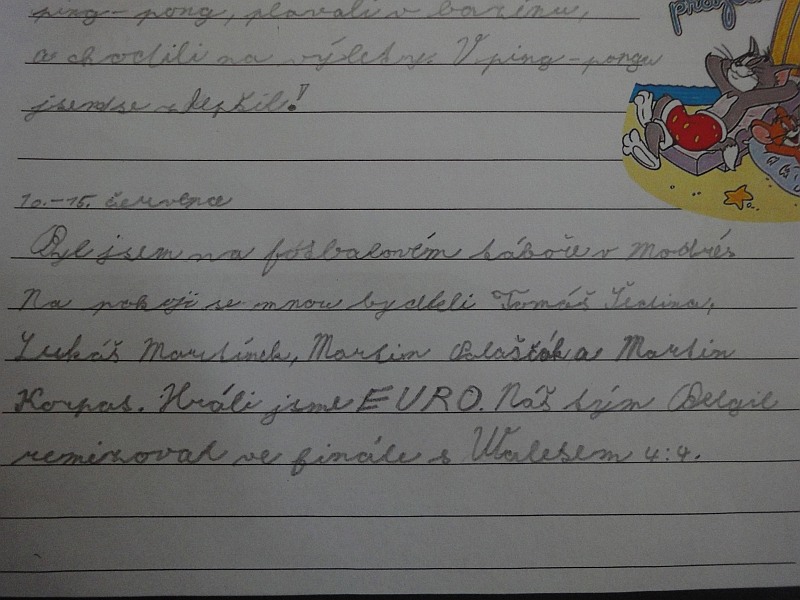 ping-pong, plavali v bazénu,
a chodili na výlety. V ping-pongu
jsem se zlepšil!
10.-15. července
Byl jsem na fotbalovém táboře v Modrés
Na pokoji se mnou bydleli Tomáš
Lukáš Martínek, Martin a Martin
Korpas. Hráli jsme EURO. Náš tým Belgie
remizoval ve finále s Walesem 4:4.